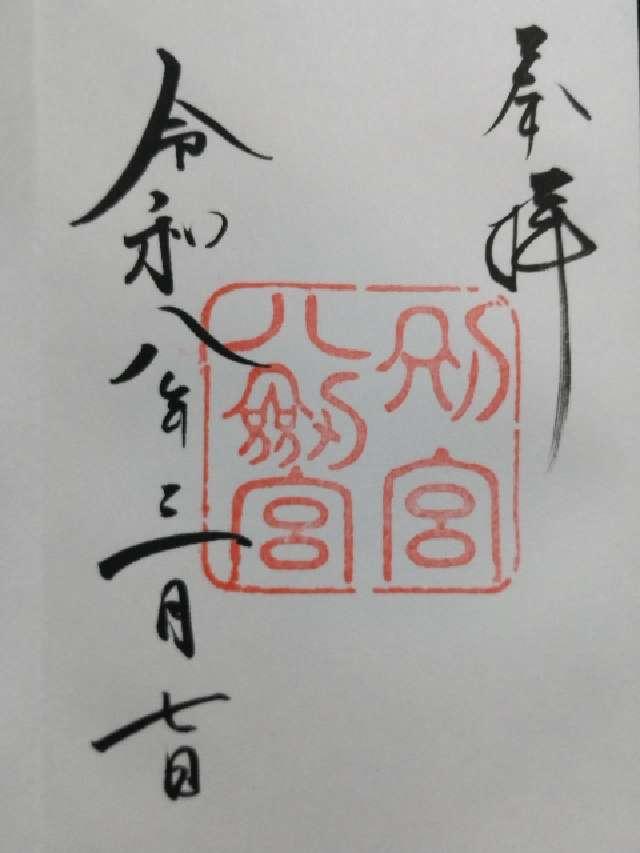 奉拝
別宮
八剱宮
令和八年三月七日